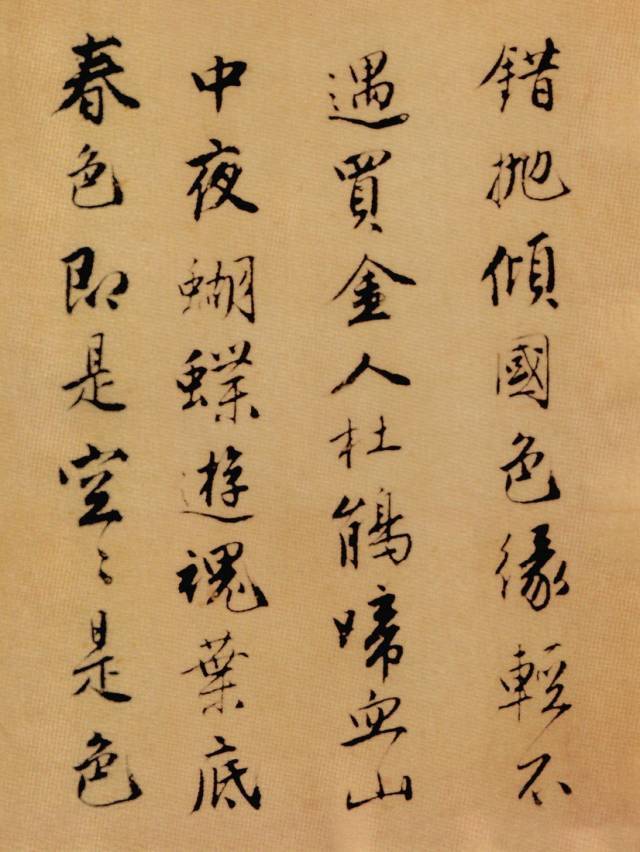 錯抛傾國色緣輕不
遇買金人杜鵑啼血山
中夜蝴蝶遊魂葉底
春色即是空〻是色